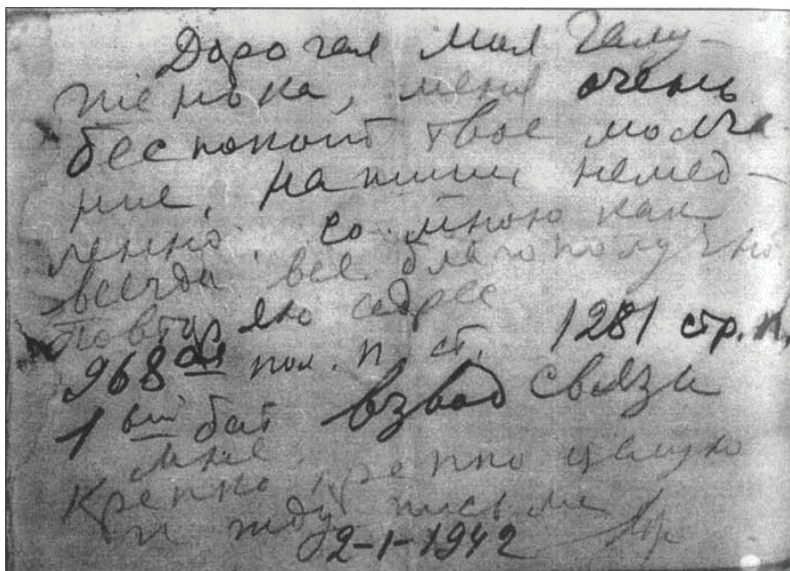 Дорогая моя Галу-
шенька, меня очень
беспокоит твое молча-
ние, напиши немед-
ленно. со мною как
всегда все благополучно
повторяю адрес
968ая пол. п. ст. 1281 стр. п,
1ый бат взвод связи
мне.
Крепко крепко целую
и жду письма
2-1-1942